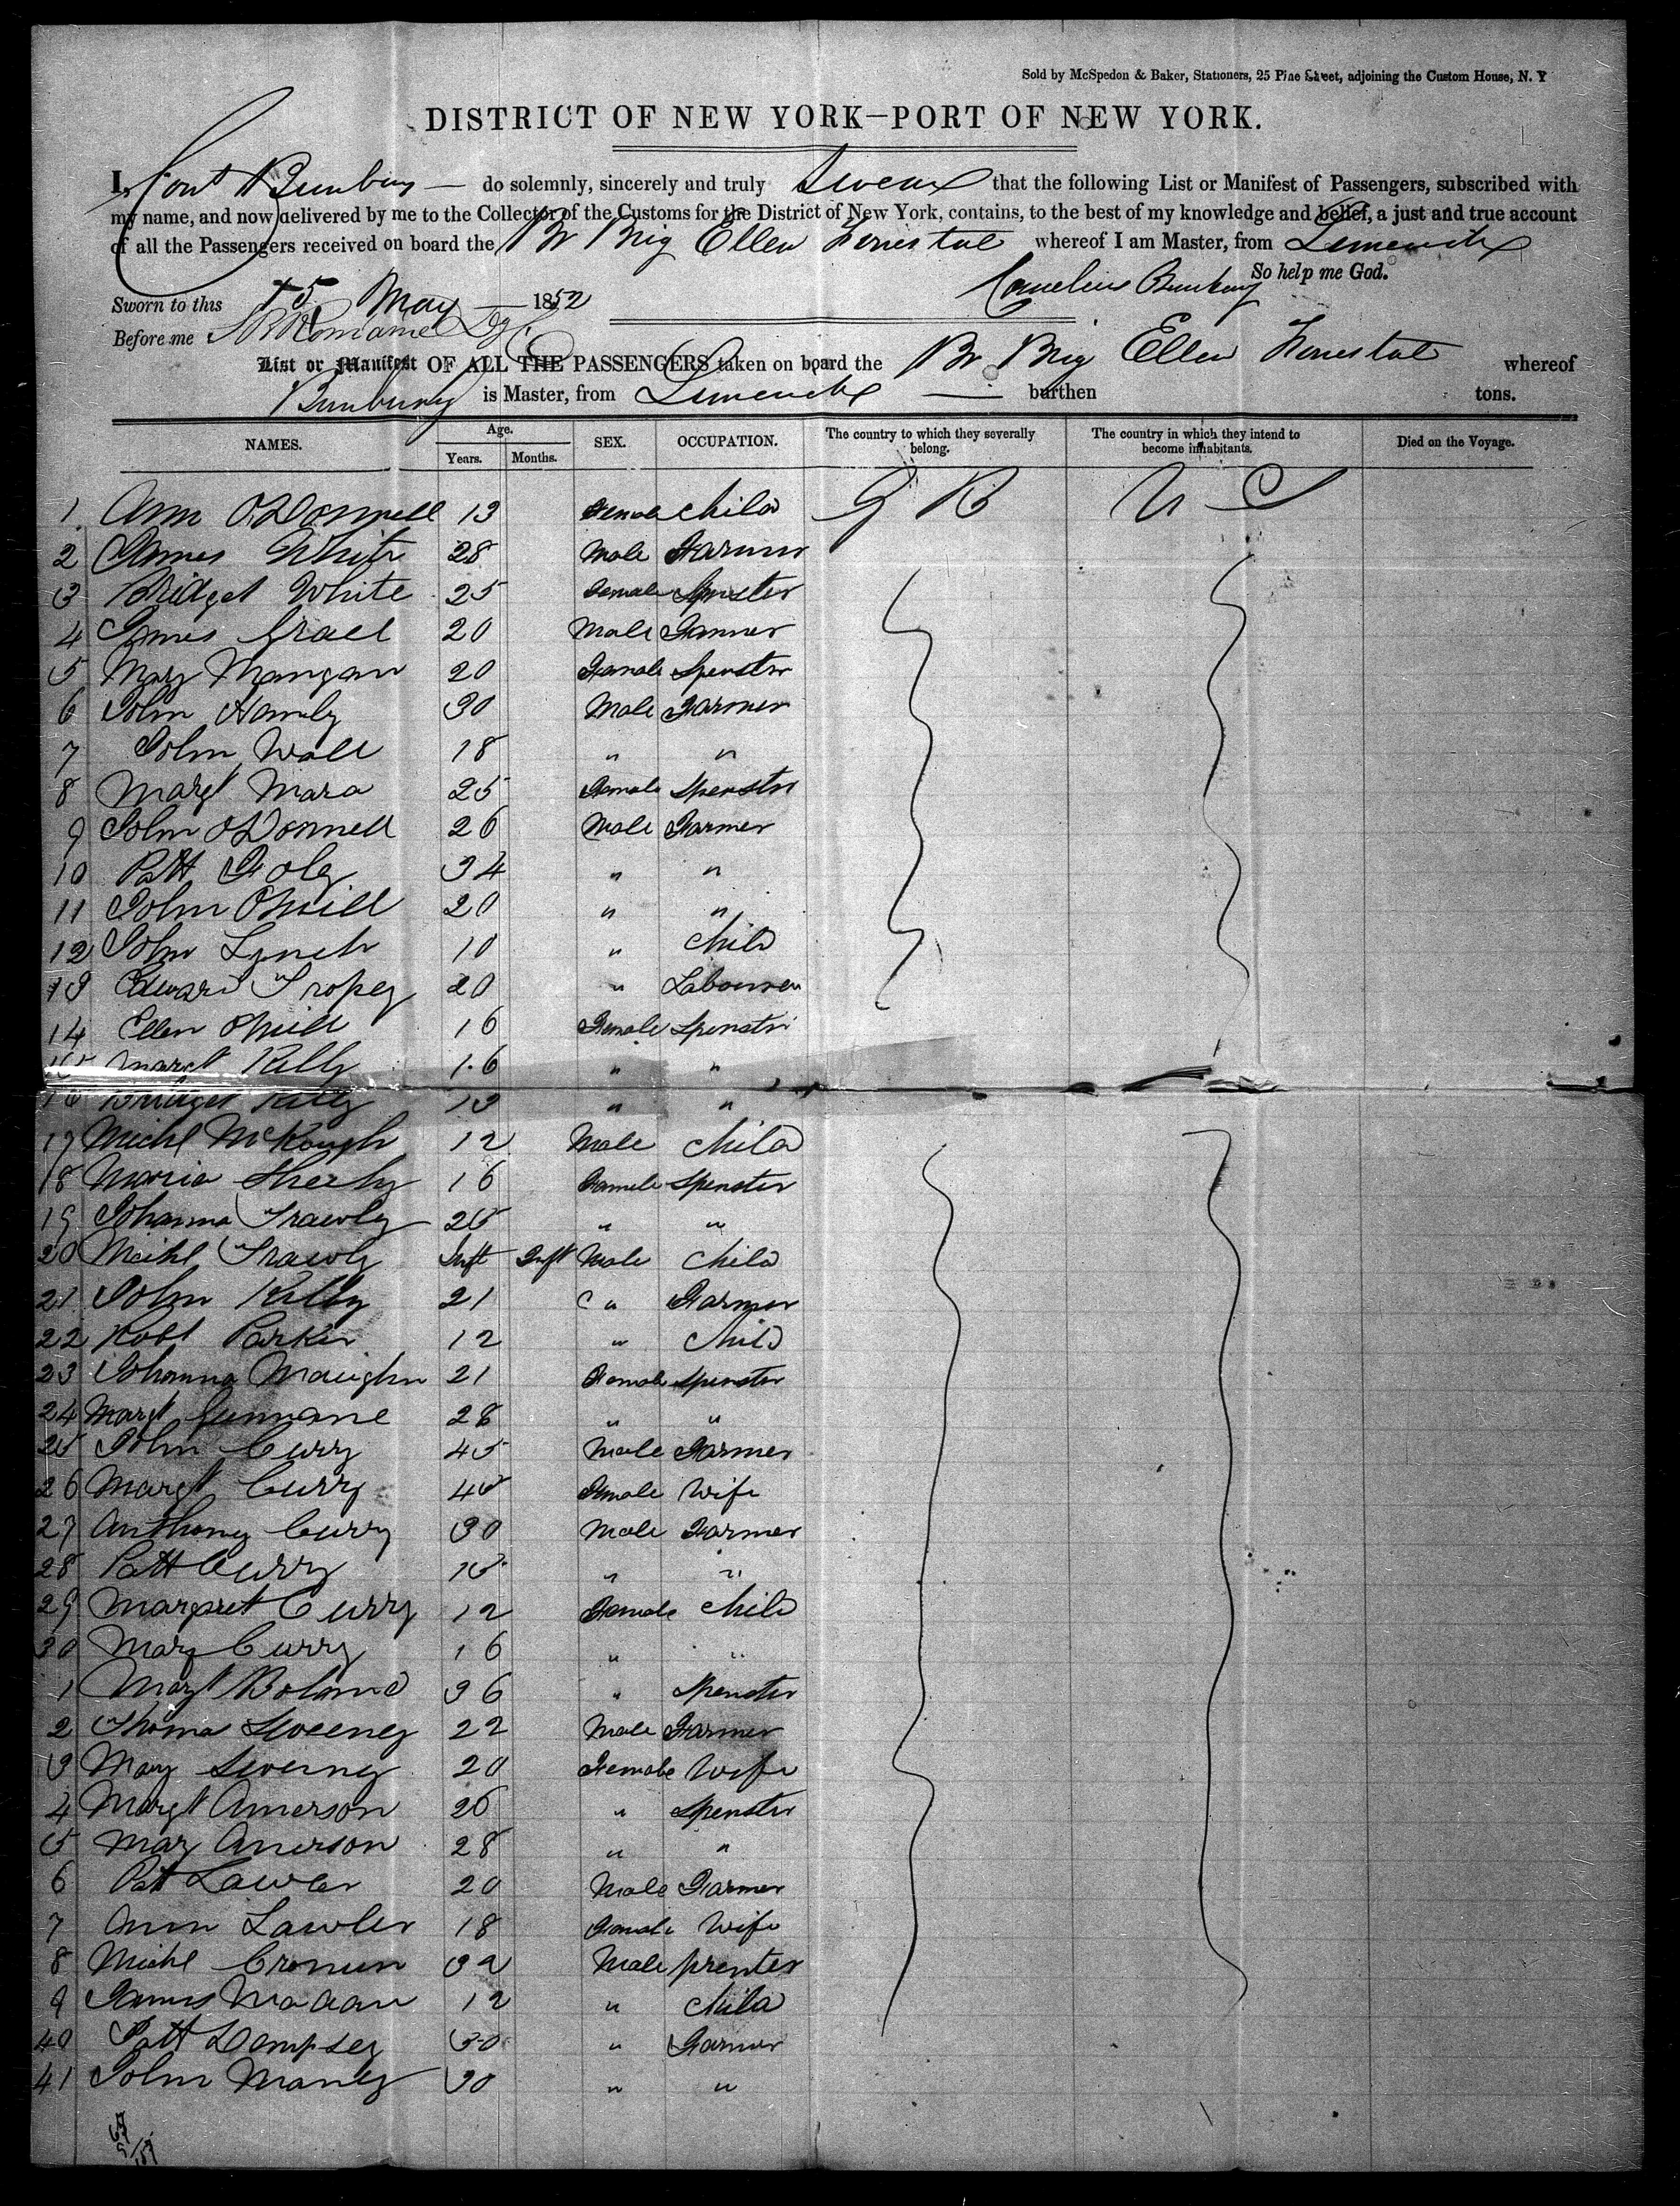 Sold by McSpedon & Baker, Stationers, 25 Pine Street, adjoining the Custom House, N. Y
DISTRICT OF NEW YORK—PORT OF NEW YORK.
I, Bunbury — do solemnly, sincerely and truly Swear that the following List or Manifest of Passengers, subscribed with
my name, and now delivered by me to the Collector of the Customs for the District of New York, contains, to the best of my knowledge and belief, a just and true account
of all the Passengers received on board the Br Brig Ellen Forrestal whereof I am Master, from Limerick
So help me God.
Cornelius Bunbury
Sworn to this 15 May — 1852
Before me
List or Manifest OF ALL THE PASSENGERS taken on board the Br Brig Ellen Forrestal whereof
Bunbury is Master, from Limerick — burthen tons.
NAMES. Age. Years. Months. SEX. OCCUPATION. The country to which they severally belong. The country in which they intend to become inhabitants. Died on the Voyage.
1 Ann O'Donnell 13 Female Child G B U S
2 James White 28 Male Farmer
3 Bridget White 25 Female Spinster
4 James Grace 20 Male Farmer
5 Mary Mangan 20 Female Spenster
6 John Hanly 30 Male Farmer
7 John Wall 18 " "
8 Margt Mara 25 Female Spenster
9 John O'Donnell 26 Male Farmer
10 Patt Foley 34 " "
11 John ONeill 20 " "
12 John Lynch 10 " Child
13 Edward Tropey 20 " Labourer
14 Ellen ONeill 16 Female Spenster
15 Margt Kelly 16 " "
16 Bridget Kelly 13 " "
17 Michl McKough 12 Male Child
18 Maria Sheehy 16 Female Spenster
19 Johanna Frawley 25 " "
20 Michl Frawly Inft Inft Male Child
21 John Kelly 21 " Farmer
22 Robt Parker 12 " Child
23 Johanna Maughn 21 Female Spenster
24 Margt Gunnane 28 " "
25 John Curry 45 Male Farmer
26 Margt Curry 45 Female Wife
27 Anthony Curry 30 Male Farmer
28 Patt Curry 15 " "
29 Margaret Curry 12 Female Child
30 Mary Curry 16 " "
1 Margt Boland 36 " Spenster
2 Thomas Sweeney 22 Male Farmer
3 Mary Sweeney 20 Female Wife
4 Margt Amerson 26 " Spenster
5 Mary Amerson 28 " "
6 Patt Lawler 20 Male Farmer
7 Ann Lawler 18 Female Wife
8 Michl Cronun 32 Male prenter
9 James Madan 12 " Child
40 Patt Dempsey 30 " Farmer
41 John Manly 30 " "